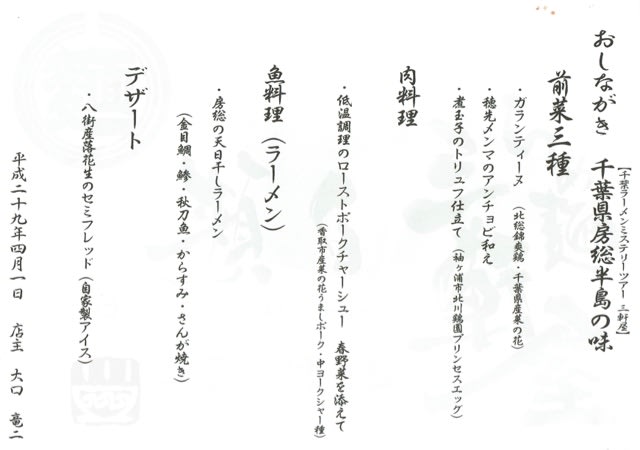 【千葉ラーメンミステリーツアー 三軒屋】
おしながき 千葉県房総半島の味
前菜三種
・ガランティーヌ (北総錦爽鶏・千葉県産菜の花)
・穂先メンマのアンチョビ和え
・煮玉子のトリュフ仕立て (袖ヶ浦市北川鶏園プリンセスエッグ)
肉料理
・低温調理のローストポークチャーシュー 春野菜を添えて
(香取市産菜の花うましポーク・中ヨークシャー種)
魚料理 (ラーメン)
・房総の天日干しラーメン
(金目鯛・鯵・秋刀魚・からすみ・さんが焼き)
デザート
・八街産落花生のセミフレッド (自家製アイス)
平成二十九年四月一日 店主 大口 竜二